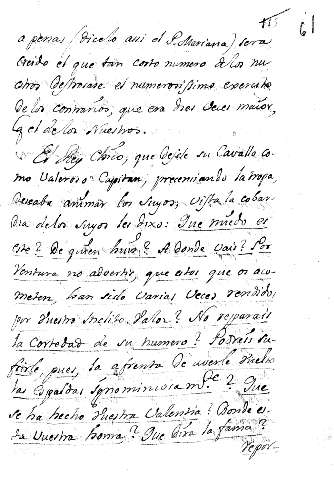 61
a penas (dicelo assi el P. Mariana) sera
creido el que tan corto numero de los nu
estros destrosase el numerosissimo exercito
de los contrarios, que era dies veces maior,
q el de los Nuestros.
El Rey Chico, que desde su Cavallo co
mo Valeroso Capitan, precenciando la tropa,
deseaba animar los suyos, vista la cobar
dia de los suyos les dixo: Que miedo es
este? De quien huis? A donde vais? Por
Ventura no advertis, que estos que os aco
meten, han sido varias veces rendidos
por vuestro Inclito Valor? No reparais
la Cortedad de su numero? Podreis su
frirle, pues, la afrenta de averle vuelto
las espaldas Ignominiosam.te? Que
se ha hecho vuestra Valentia? Donde es
ta vuestra honra? Que dirà la fama?
repor-